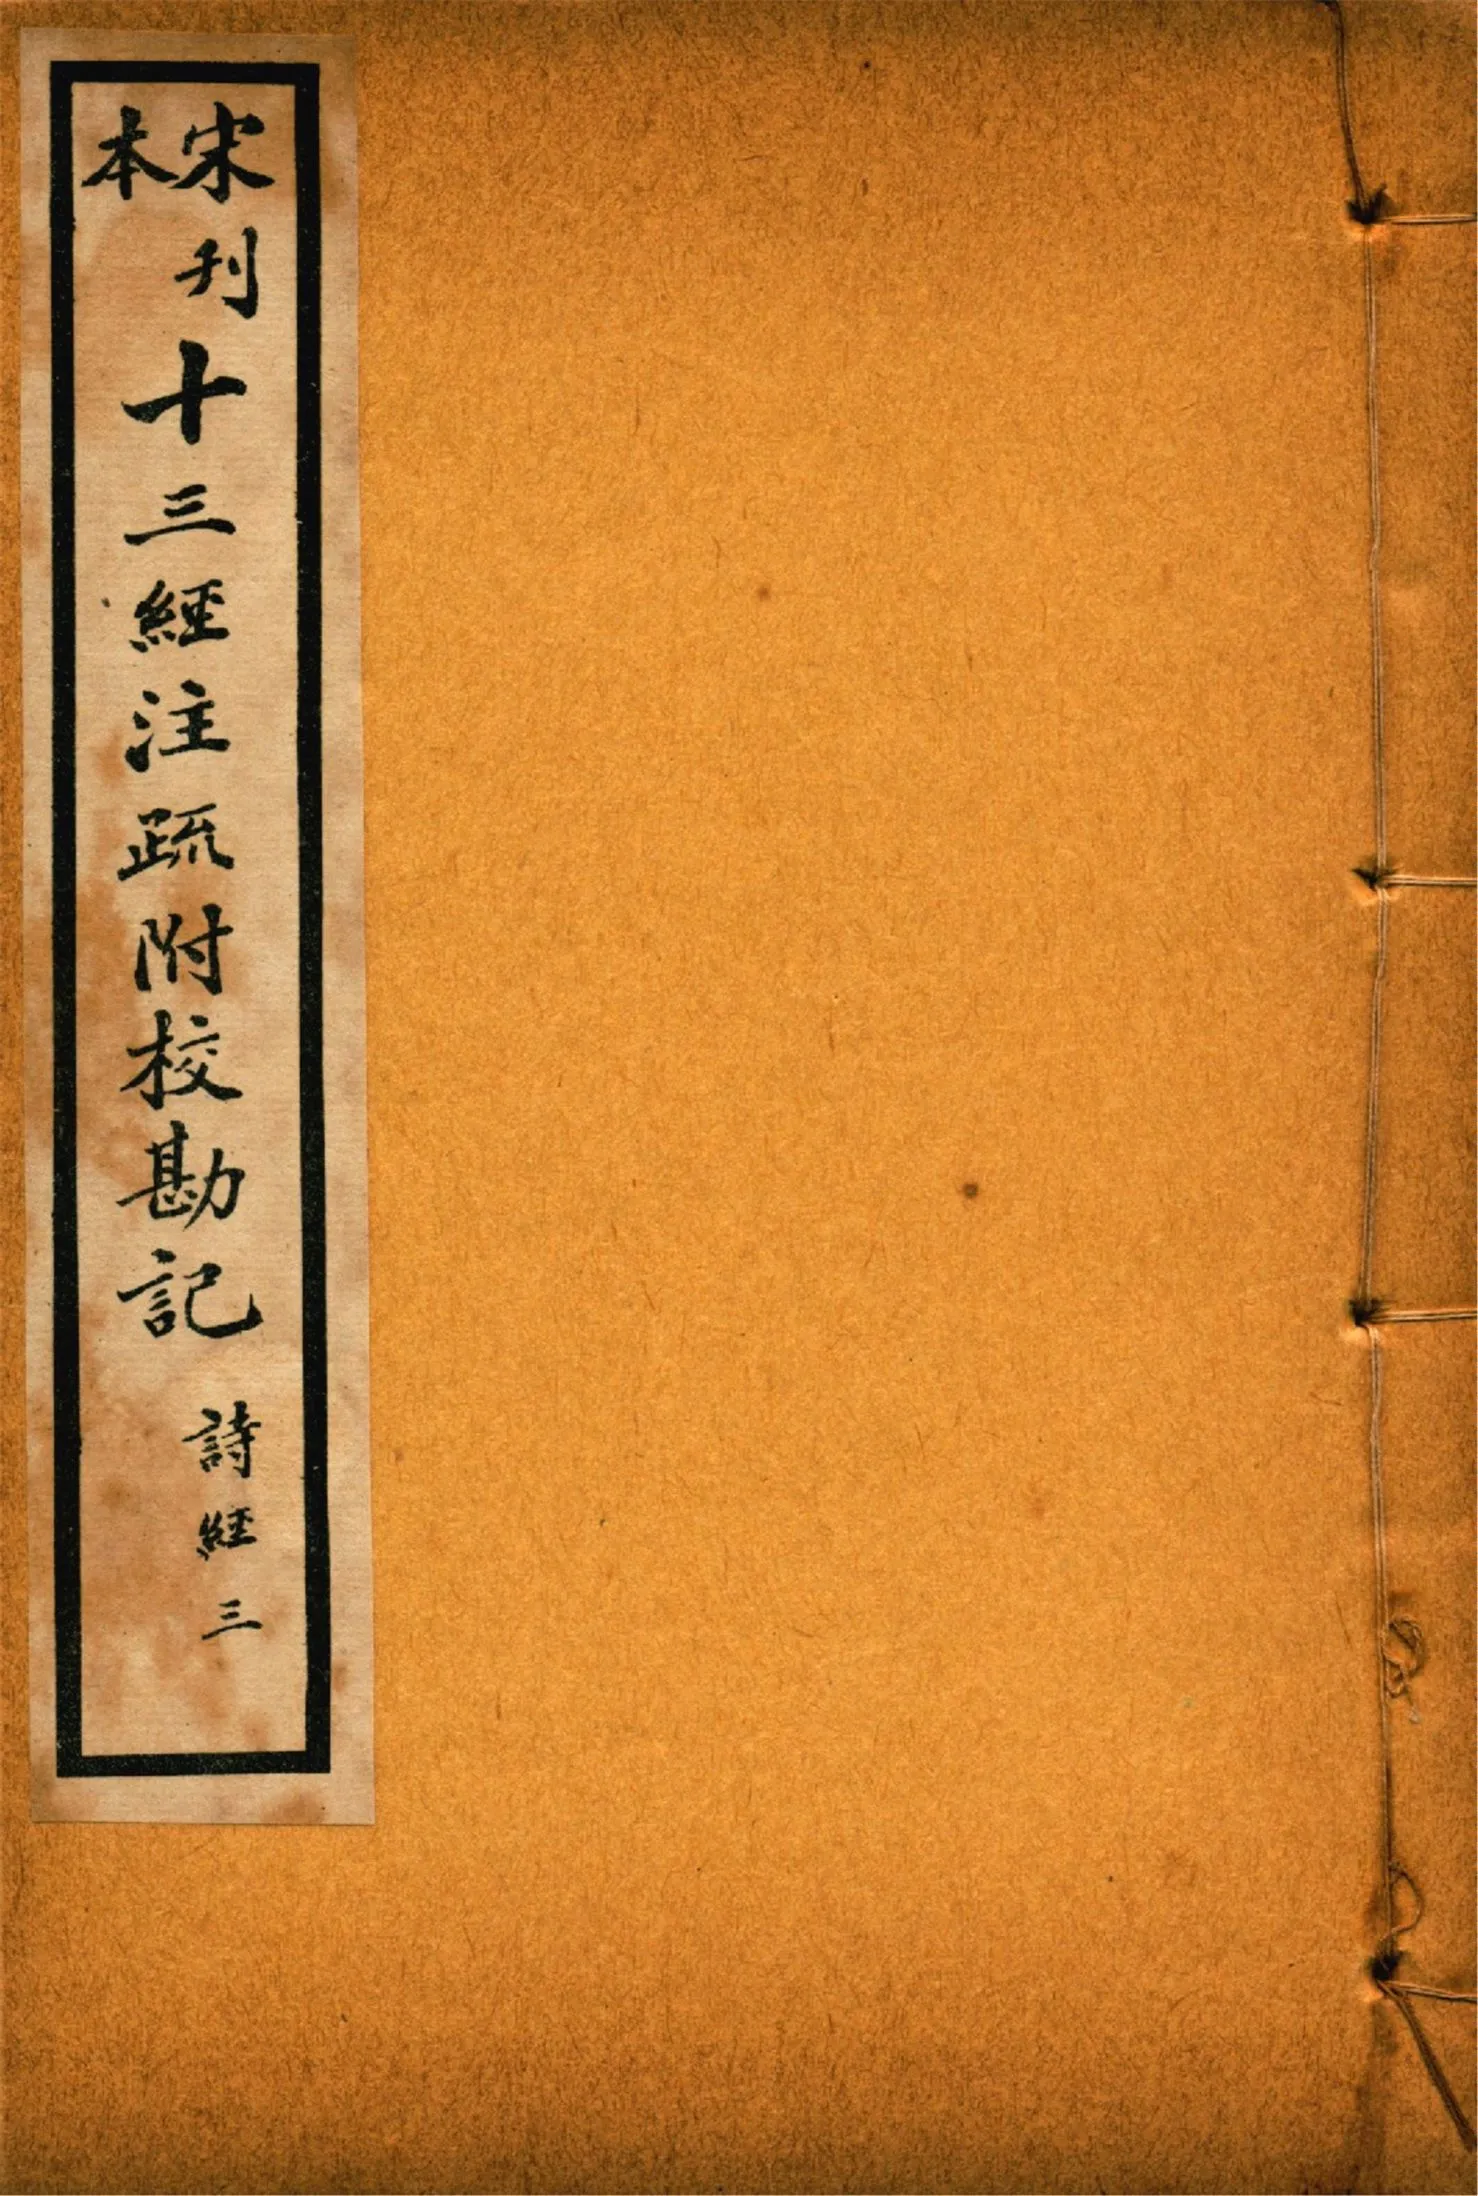 宋刊本十三經注疏附校勘記
詩經三